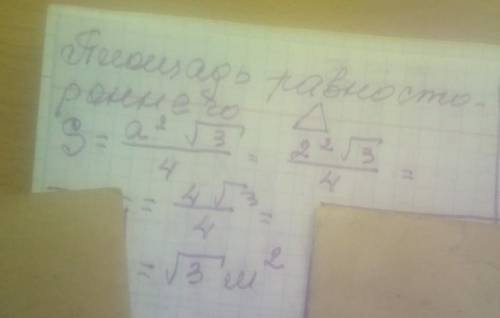 Площадь равносто-
роннего △
S = a² √3 / 4 = 2² √3 / 4 =
= 4 √3 / 4 =
= √3 м²